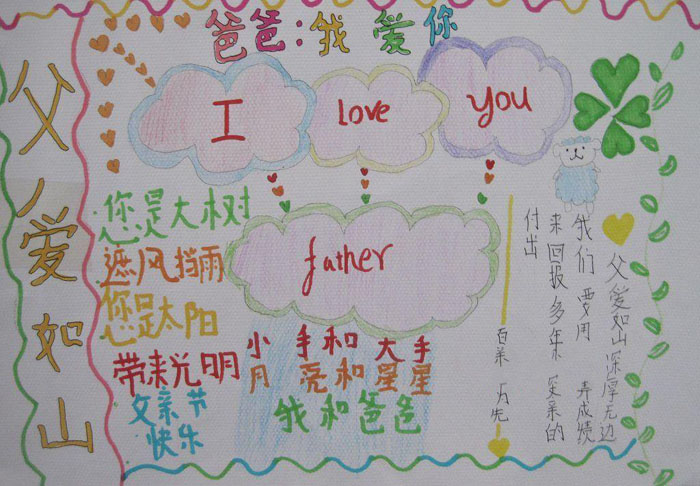 爸爸:我爱你
父爱如山
I love you
father
您是大树
遮风挡雨
您是太阳
带来光明
父亲节
快乐
小手和大手
月亮和星星
我和爸爸
父爱如山深厚无边
我们 要用 成绩
来回报多年 亲的
付出